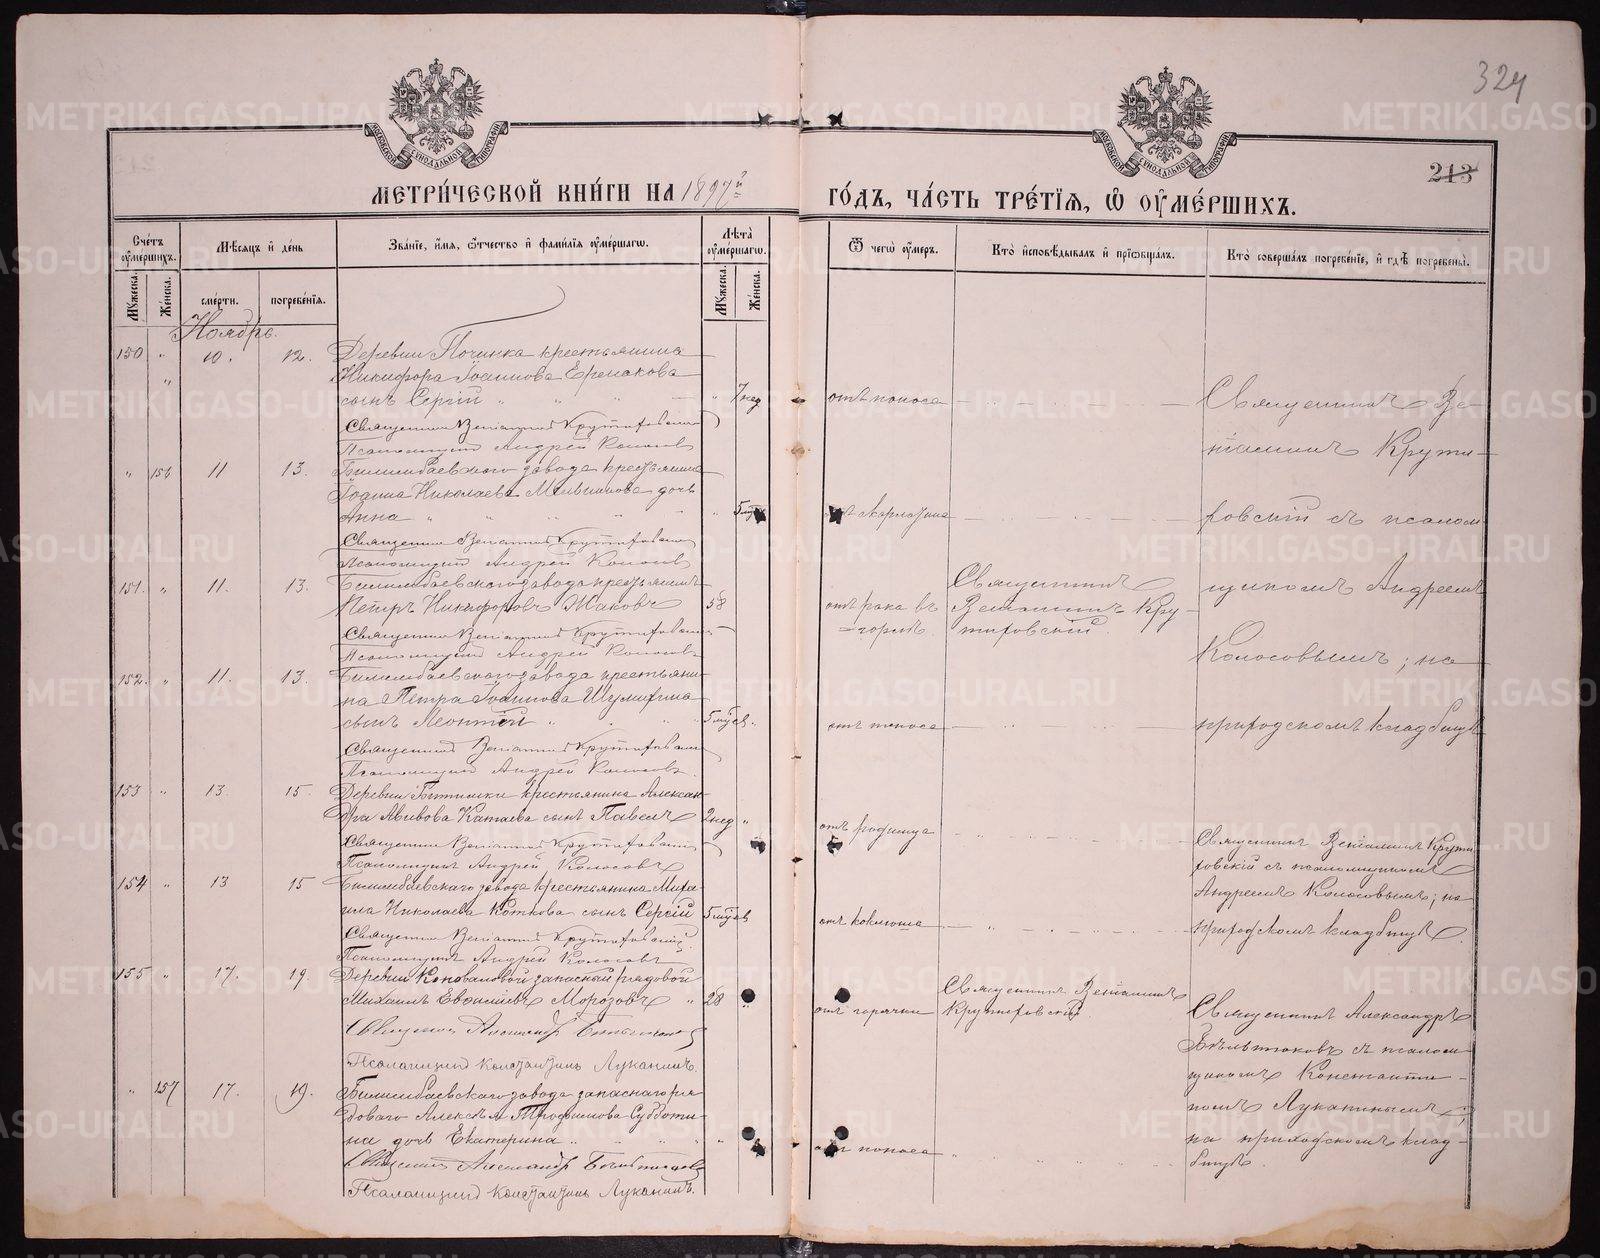 324
213
МЕТРИЧЕСКОЙ КНИГИ НА 1897й
ГОДЪ, ЧАСТЬ ТРЕТІЯ, Ѿ ОУМЕРШИХЪ.
Счетъ оумершихъ.
Мужеска.
Женска.
Мѣсяцъ и день
смерти.
погребенія.
Званіе, имя, отчество и фамилія оумершагω.
Лѣта оумершагω.
Мужеска.
Женска.
Ѿ чегω оумеръ.
Кто исповѣдывалъ и пріобщалъ.
Кто совершалъ погребеніе, и гдѣ погребены.
Ноябрь.
150 " 10. 12. Деревни Починка крестьянина
Никифора Іоаннова Ермакова
сынъ Сергій " 7 нед отъ поноса
Священникъ Веніаминъ Крутиховскій
Псаломщикъ Андрей Колосовъ
" 156 11 13. Билимбаевского завода крестьянина
Іоанна Николаева дочь
Анна " 5
Священникъ Веніаминъ Крутиховскій
Псаломщикъ Андрей Колосовъ
151. " 11. 13. Билимбаевского завода крестьянинъ
Петръ Никифоровъ Жаковъ 58 отъ рака въ
горлѣ.
Священникъ
Веніаминъ Кру-
тиховскій.
Священникъ Веніаминъ Крутиховскій
Псаломщикъ Андрей Колосовъ
152. " 11. 13. Билимбаевского завода крестьяни-
на Петра Іоаннова
сынъ Леонтій " 5 мѣсв " отъ поноса
Священникъ Веніаминъ Крутиховскій
Псаломщикъ Андрей Колосовъ
Священникъ Ве-
ніаминъ Крути-
ховскій съ псалом-
щикомъ Андреемъ
Колосовымъ; на
приходскомъ кладбищѣ
153 " 13. 15. Деревни Битимки крестьянина Алексан-
дра Авивова Катаева сынъ Павелъ 2 нед " отъ родимца
Священникъ Веніаминъ Крутиховскій
Псаломщикъ Андрей Колосовъ
154 " 13 15 Билимбаевскаго завода крестьянина Миха-
ила Николаева Коткова сынъ Сергій 5 мѣсв отъ коклюша
Священникъ Веніаминъ Крутиховскій
Псаломщикъ Андрей Колосовъ
Священникъ Веніаминъ Крути
ховскій съ псаломщикомъ
Андреемъ Колосовымъ; на
приходскомъ кладбищѣ.
155 " 17. 19. Деревни Коноваловой запасной рядовой
Михаилъ Евсиміевъ Морозовъ " 28 отъ горячки
Священникъ Веніаминъ
Крутиховскій
Священникъ Александръ
Псаломщикъ Константинъ Луканинъ.
" 157 17. 19. Билимбаевскаго завода запаснаго ря
доваго Алексѣя Трофимова Субботи-
на дочь Екатерина " " отъ поноса
Священникъ Александръ
Псаломщикъ Константинъ Луканинъ.
Священникъ Александръ
съ псалом-
щикомъ Константи-
номъ Луканинымъ
на приходскомъ клад-
бищѣ.
METRIKI.GASO-URAL.RU